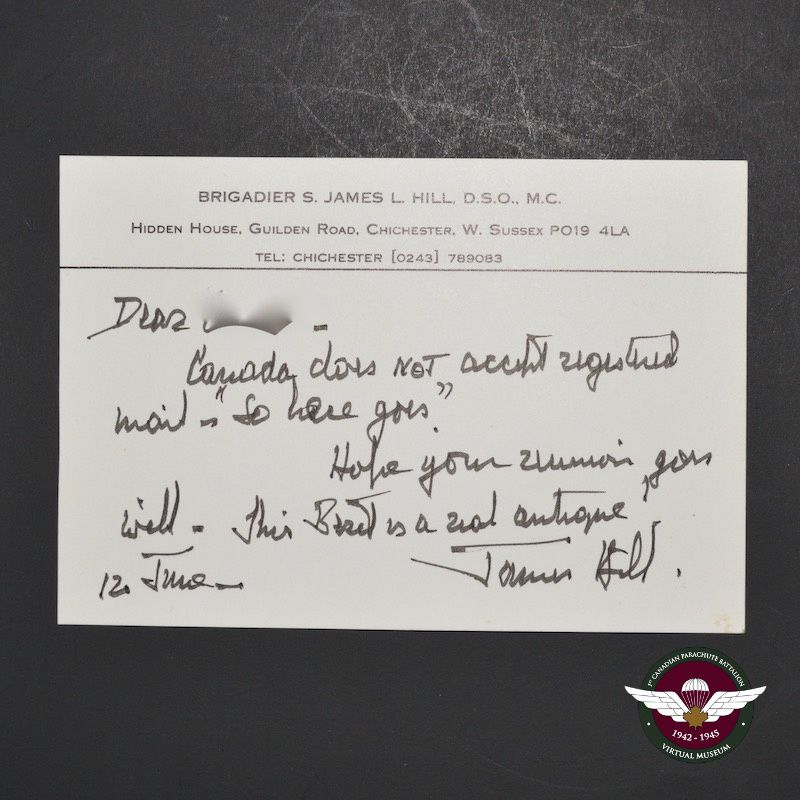 BRIGADIER S. JAMES L. HILL, D.S.O., M.C.
HIDDEN HOUSE, GUILDEN ROAD, CHICHESTER, W. SUSSEX PO19 4LA
TEL: CHICHESTER [0243] 789083
Dear -
Canada does NOT accept registered
mail - "So here goes"
Hope your reunion goes
well - This Beret is a real "antique"
12. June - James Hill.
1ST CANADIAN PARACHUTE BATTALION
1942 - 1945
VIRTUAL MUSEUM